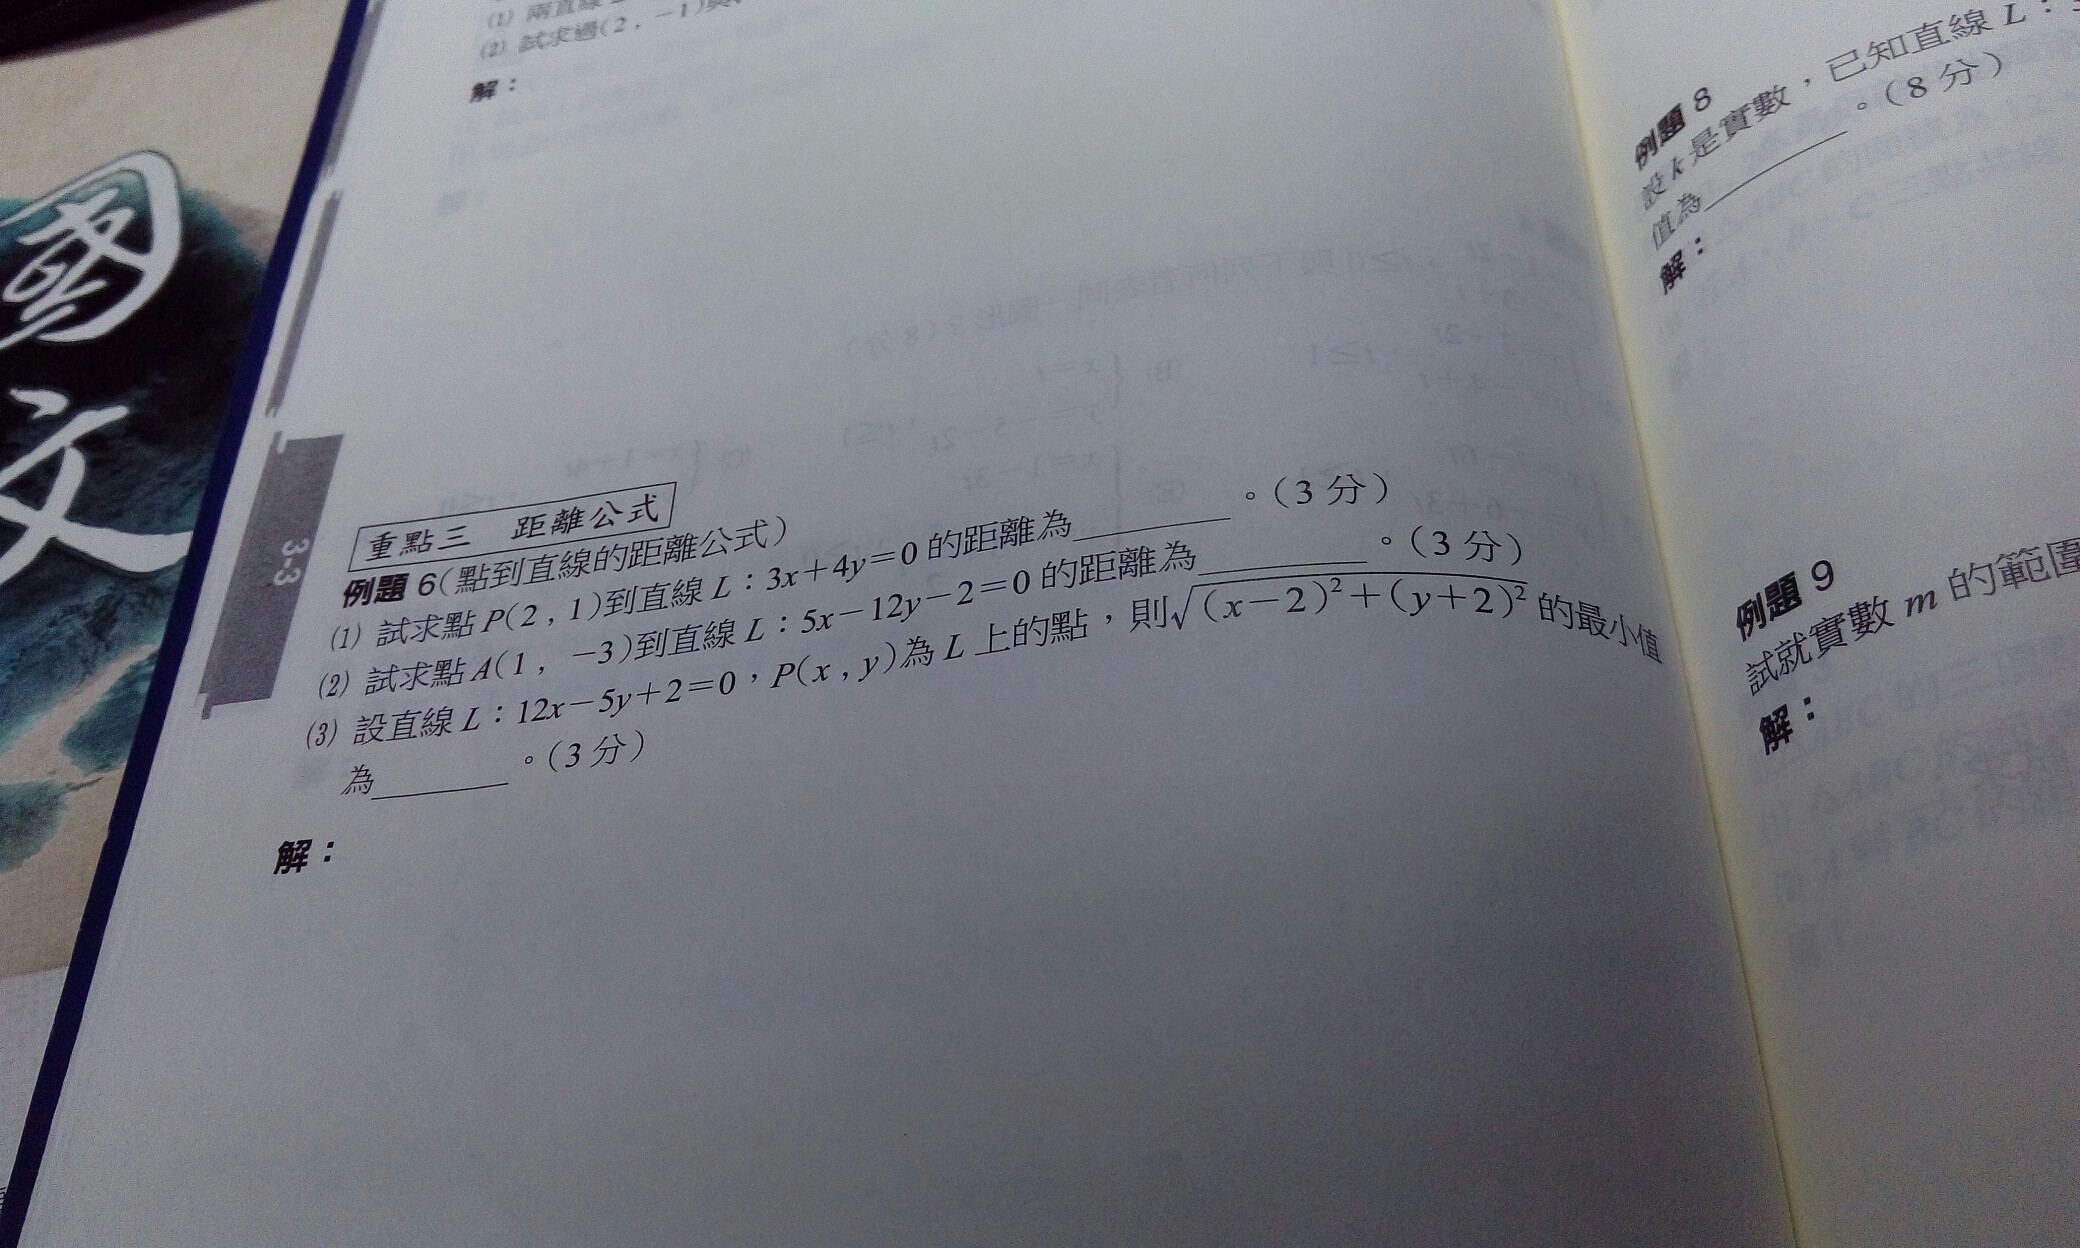 國文
(1) 兩直線
(2) 試求過(2,-1)與
解：
3-3
重點三 距離公式
例題 6(點到直線的距離公式)
(1) 試求點 P(2,1)到直線 L：3x+4y=0 的距離為________。(3 分)
(2) 試求點 A(1,-3)到直線 L：5x-12y-2=0 的距離為________。(3 分)
(3) 設直線 L：12x-5y+2=0，P(x,y)為 L 上的點，則√(x-2)²+(y+2)² 的最小值
為________。(3 分)
解：
例題 8
設 k 是實數，已知直線 L：
值為________。(8 分)
解：
例題 9
試就實數 m 的範圍
解：